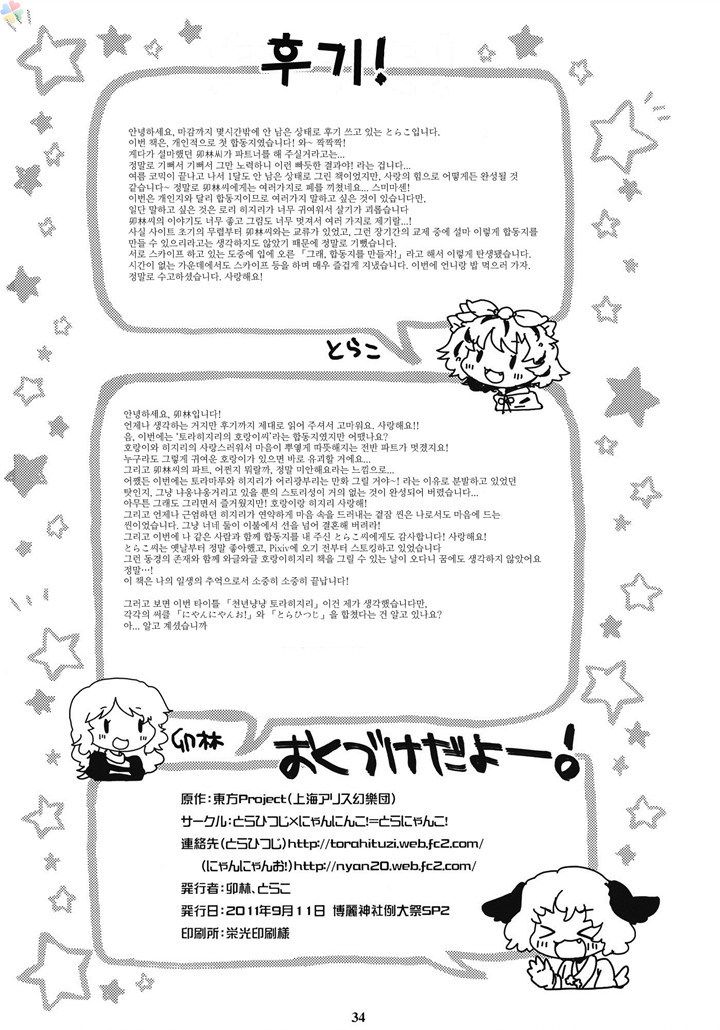 후기!
안녕하세요, 마감까지 몇시간밖에 안 남은 상태로 후기 쓰고 있는 とらこ입니다.
이번 책은, 개인적으로 첫 합동지였습니다! 와~ 짝짝짝!
게다가 설마했던 卯林씨가 파트너를 해 주실거라고는...
정말로 기뻐서 기뻐서 그만 노력하니 이런 빠듯한 결과야! 라는 겁니다...
여름 코믹이 끝나고 나서 1달도 안 남은 상태로 그린 책이었지만, 사랑의 힘으로 어떻게든 완성될 것
같습니다~ 정말로 卯林씨에게는 여러가지로 폐를 끼쳤네요... 스미마셴!
이번은 개인지와 달리 합동지이므로 여러가지 말하고 싶은 것이 있습니다만,
일단 말하고 싶은 것은 로리 히지리가 너무 귀여워서 살기가 괴롭습니다
卯林씨의 이야기도 너무 좋고 그림도 너무 멋져서 여러 가지로 제기랄...!
사실 사이트 초기의 무렵부터 卯林씨와는 교류가 있었고, 그런 장기간의 교제 중에 설마 이렇게 합동지를
만들 수 있으리라고는 생각하지도 않았기 때문에 정말로 기뻤습니다.
서로 스카이프 하고 있는 도중에 입에 오른 「그래, 합동지를 만들자!」라고 해서 이렇게 탄생됐습니다.
시간이 없는 가운데에서도 스카이프 등을 하며 매우 즐겁게 지냈습니다. 이번에 언니랑 밥 먹으러 가자.
정말로 수고하셨습니다. 사랑해요!
とらこ
안녕하세요, 卯林입니다!
언제나 생각하는 거지만 후기까지 제대로 읽어 주셔서 고마워요. 사랑해요!!
음, 이번에는 '토라히지리의 호랑이씨'라는 합동지였지만 어땠나요?
호랑이와 히지리의 사랑스러워서 마음이 뿌옇게 따뜻해지는 전반 파트가 멋졌지요!
누구라도 그렇게 귀여운 호랑이가 있으면 바로 유괴할 거에요...
그리고 卯林씨의 파트, 어쩐지 뭐랄까, 정말 미안해요라는 느낌으로...
어쨌든 이번에는 토라마루와 히지리가 어리광부리는 만화 그릴 거야~! 라는 이유로 분발하고 있었던
탓인지, 그냥 냐옹냐옹거리고 있을 뿐의 스토리성이 거의 없는 것이 완성되어 버렸습니다...
아무튼 그래도 그리면서 즐거웠지만! 호랑이랑 히지리 사랑해!
그리고 언제나 근엄하던 히지리가 연약하게 마음 속을 드러내는 곁잠 씬은 나로서도 마음에 드는
씬이었습니다. 그냥 너네 둘이 이불에서 선을 넘어 결혼해 버려라!
그리고 이번에 나 같은 사람과 함께 합동지를 내 주신 とらこ씨에게도 감사합니다! 사랑해요!
とらこ씨는 옛날부터 정말 좋아했고, Pixiv에 오기 전부터 스토킹하고 있었습니다
그런 동경의 존재와 함께 와글와글 호랑이히지리 책을 그릴 수 있는 날이 오다니 꿈에도 생각하지 않았어요
정말…!
이 책은 나의 일생의 추억으로서 소중히 소중히 끝납니다!
그러고 보면 이번 타이틀 「천년냥냥 토라히지리」 이건 제가 생각했습니다만,
각각의 써클 「にやんにやんお!」와 「とらひつじ」을 합쳤다는 건 알고 있나요?
아... 알고 계셨습니까
卯林
おくづけだよー!
原作:東方Project(上海アリス幻樂団)
サークル:とらひつじ×にゃんにんこ!=とらにゃんこ!
連絡先(とらひつじ)http://torahituzi.web.fc2.com/
(にゃんにゃんお!)http://nyan20.web.fc2.com/
発行者:卯林、とらこ
発行日:2011年9月11日 博麗神社例大祭SP2
印刷所:栄光印刷様
34